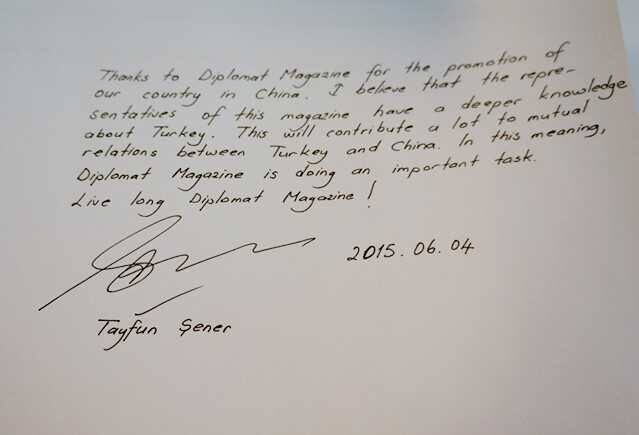 Thanks to Diplomat Magazine for the promotion of
our country in China. I believe that the repre-
sentatives of this magazine have a deeper knowledge
about Turkey. This will contribute a lot to mutual
relations between Turkey and China. In this meaning,
Diplomat Magazine is doing an important task.
Live long Diplomat Magazine!
2015.06.04
Tayfun Şener